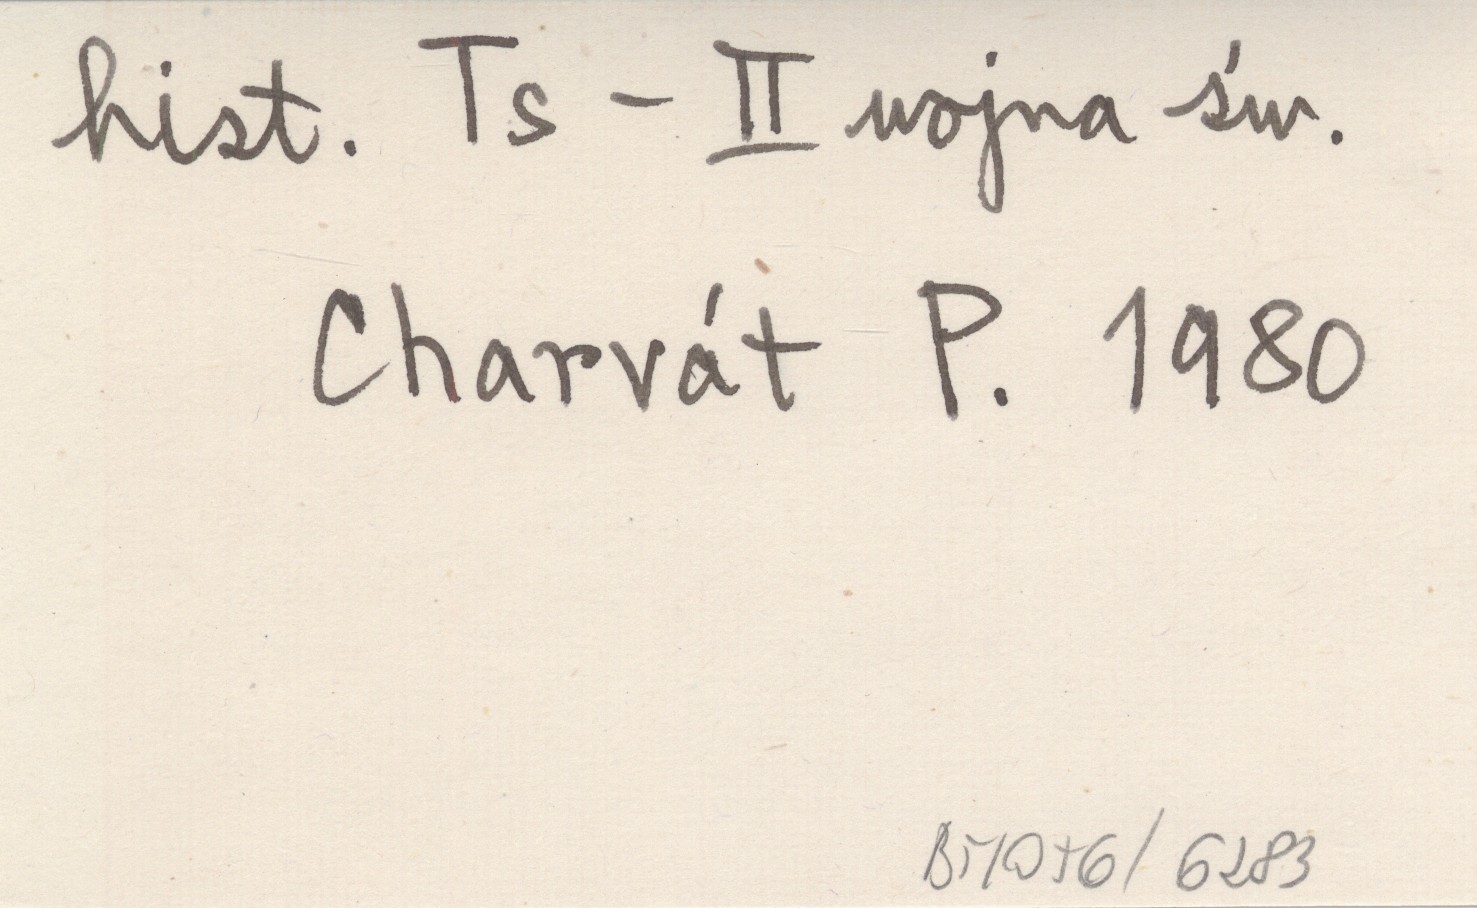 hist. Ts - II wojna św.
Charvát P. 1980
6283